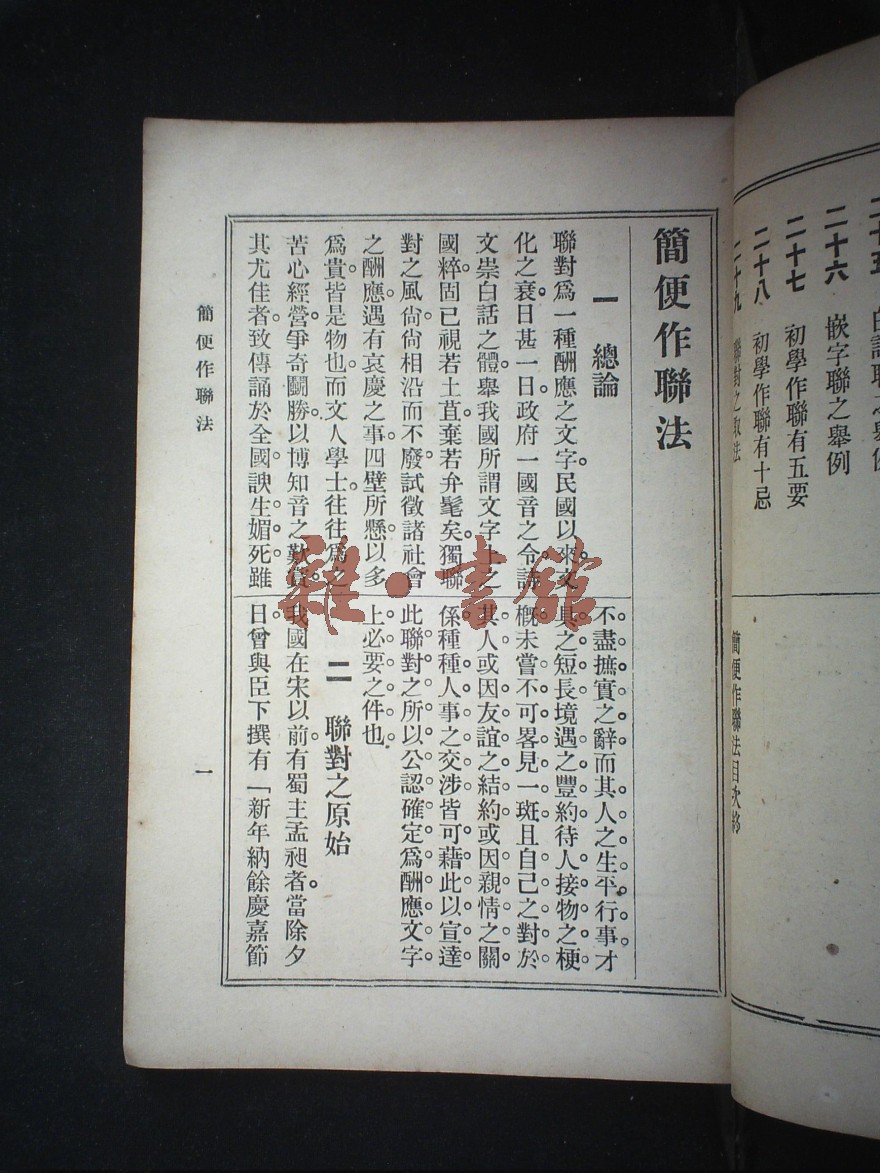 二十六 嵌字聯之舉例
二十七 初學作聯有五要
二十八 初學作聯有十忌
二十九 聯對之取法
簡便作聯法目次終
簡便作聯法
一 總論
聯對爲一種酬應之文字民國以來文
化之衰日甚一日政府一國音之令詩
文祟白話之體舉我國所謂文字上之
國粹固已視若土苴棄若弁髦矣獨聯
對之風尙尙相沿而不廢試徵諸社會
之酬應遇有哀慶之事四壁所懸以多
爲貴皆是物也而文人學士往往爲之
苦心經營爭奇鬭勝以博知音之歎賞
其尤佳者致傳誦於全國諛生媚死雖
不盡摭實之辭而其人之生平行事才
具之短長境遇之豐約待人接物之梗
槪未嘗不可畧見一斑且自己之對於
其人或因友誼之結約或因親情之關
係種種人事之交涉皆可藉此以宣達
此聯對之所以公認確定爲酬應文字
上必要之件也
二 聯對之原始
我國在宋以前有蜀主孟昶者當除夕
日曾與臣下撰有「新年納餘慶嘉節
簡便作聯法
一
雜·書館